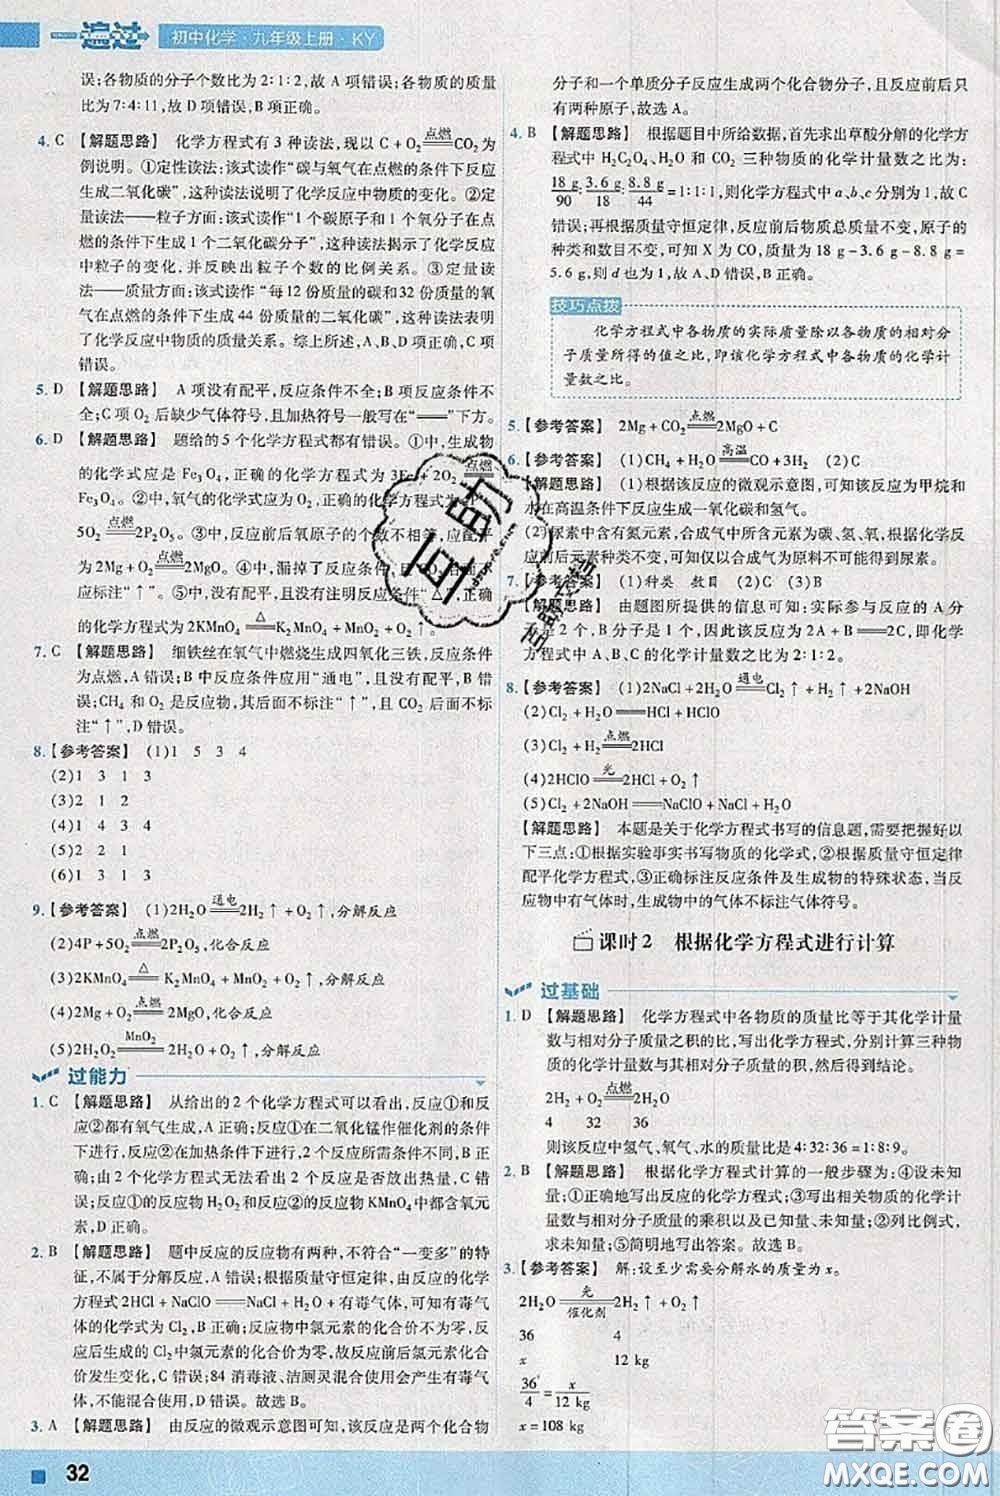 一遍过 初中化学·九年级上册·KY
误;各物质的分子个数比为2∶1∶2,故A项错误;各物质的质量
比为7∶4∶11,故D项错误,B项正确。
4. C 【解题思路】 化学方程式有3种读法,现以C+O₂ 点燃══CO₂为
例说明。①定性读法:该式读作“碳与氧气在点燃的条件下反应
生成二氧化碳”,这种读法说明了化学反应中物质的变化。②定
量读法——粒子方面:该式读作“1个碳原子和1个氧分子在点
燃的条件下生成1个二氧化碳分子”,这种读法揭示了化学反应
中粒子的变化,并反映出粒子个数的比例关系。③定量读
法——质量方面:该式读作“每12份质量的碳和32份质量的氧
气在点燃的条件下生成44份质量的二氧化碳”,这种读法表明
了化学反应中物质的质量关系。综上所述,A、B、D项正确,C项
错误。
5. D 【解题思路】 A项没有配平,反应条件不全;B项反应条件不
全;C项O₂后缺少气体符号,且加热符号一般写在“══”下方。
6. D 【解题思路】 题给的5个化学方程式都有错误。①中,生成物
的化学式应是Fe₃O₄,正确的化学方程式为3Fe+2O₂ 点燃══
Fe₃O₄。②中,氧气的化学式应为O₂,正确的化学方程式为4P+
5O₂ 点燃══2P₂O₅。③中,反应前后氧原子的个数不相等,应配平为
2Mg+O₂ 点燃══2MgO。④中,漏掉了反应条件,
应标注“↑”。⑤中,没有配平,且漏掉了反应条件“△”,正确
的化学方程式为2KMnO₄ △══K₂MnO₄+MnO₂+O₂↑。
7. C 【解题思路】 细铁丝在氧气中燃烧生成四氧化三铁,反应条件
为点燃,A错误;B中反应条件应用“通电”,且没有配平,B错
误;CH₄和O₂是反应物,其后面不标“↑”,且CO₂后面不标
注“↑”,D错误。
8.【参考答案】 (1)1 5 3 4
(2)1 3 1 3
(3)2 1 2
(4)1 4 3 4
(5)2 2 1
(6)1 1 1 1
9.【参考答案】 (1)2H₂O 通电══2H₂↑+O₂↑,分解反应
(2)4P+5O₂ 点燃══2P₂O₅,化合反应
(3)2KMnO₄ △══K₂MnO₄+MnO₂+O₂↑,分解反应
(4)2Mg+O₂ 点燃══2MgO,化合反应
(5)2H₂O₂ MnO₂══2H₂O+O₂↑,分解反应
过能力
1. C 【解题思路】 从给出的2个化学方程式可以看出,反应①和反
应②都有氧气生成,A正确;反应①在二氧化锰作催化剂的条件
下进行,反应②在加热条件下进行,2个反应所需条件不同,B正
确;由2个化学方程式无法看出反应②是否放出热量,C错
误;反应①的反应物H₂O₂和反应②的反应物KMnO₄中都含氧元
素,D正确。
2. B 【解题思路】 题中反应的反应物有两种,不符合“一变多”的特
征,不属于分解反应,A错误;根据质量守恒定律,反应的化学
方程式2HCl+NaClO══NaCl+H₂O+有毒气体,可知有毒气
体的化学式为Cl₂,B正确;反应物中氯元素的化合价不为零,反
应后生成的Cl₂中氯元素的化合价为零,故反应前后氯元素的化合
价发生变化,C错误;84消毒液、洁厕灵混合使用会产生有毒气
体,不能混合使用,D错误。故选B。
3. A 【解题思路】 由反应的微观示意图可知,该反应是两个化合物
分子和一个单质分子反应生成两个化合物分子,且反应前后只
有两种原子,故选A。
4. B 【解题思路】 根据题目中所给数据,首先求出草酸分解的化学方
程式中H₂C₂O₄、H₂O和CO₂三种物质的化学计量数之比为
18 g/90∶3.6 g/18∶8.8 g/44=1∶1∶1,则化学方程式中a、b、c分别为1,故C
错误;再根据质量守恒定律,反应前后物质总质量不变,原子的
种类和数目不变,可知X为CO,质量为18 g-3.6 g-8.8 g=
5.6 g,则d也为1,故A、D错误,B正确。
技巧点拨
化学方程式中各物质的实际质量除以各物质的相对分
子质量所得的值之比,即该化学方程式中各物质的化学计
量数之比。
5.【参考答案】 2Mg+CO₂ 点燃══2MgO+C
6.【参考答案】 (1)CH₄+H₂O 高温══CO+3H₂ (2)C
【解题思路】 (1)根据该反应的微观示意图,可知该反应为甲烷和
水在高温条件下反应生成一氧化碳和氢气。
(2)尿素中含有氮元素,合成气中所含元素为碳、氢、氧,根据化学反
应前后元素种类不变,可知仅以合成气为原料不可能得到尿素。
7.【参考答案】 (1)种类 数目 (2)C (3)B
【解题思路】 由题图所提供的信息可知:实际参与反应的A分
子是2个,B分子是1个,因此该反应为2A+B══2C,即化学方
程式中A、B、C的化学计量数之比为2∶1∶2。
8.【参考答案】 (1)2NaCl+2H₂O 通电══Cl₂↑+H₂↑+2NaOH
(2)Cl₂+H₂O══HCl+HClO
(3)Cl₂+H₂ 点燃══2HCl
(4)2HClO 光══2HCl+O₂↑
(5)Cl₂+2NaOH══NaClO+NaCl+H₂O
【解题思路】 本题是关于化学方程式书写的信息题,需要把握好以
下三点:①根据实验事实书写物质的化学式,②根据质量守恒定律
配平化学方程式;③正确标注反应条件及生成物的特殊状态,当反
应物中有气体时,生成物中的气体不标注气体符号。
课时2 根据化学方程式进行计算
过基础
1. D 【解题思路】 化学方程式中各物质的质量比等于其化学计量
数与相对分子质量之积的比,写出化学方程式,分别计算三种物
质的化学计量数与其相对分子质量的积,然后得出结论。
2H₂+O₂ 点燃══2H₂O
4 32 36
则该反应中氢气、氧气、水的质量比是4∶32∶36=1∶8∶9。
2. B 【解题思路】 根据化学方程式计算的一般步骤为:④设未知
量;①正确地写出反应的化学方程式;③写出相关物质的化学计
量数与相对分子质量的乘积以及已知量、未知量;②列比例式,
求未知量;⑤简明地写出答案。故选B。
3.【参考答案】 解:设至少需要分解水的质量为x。
2H₂O 光══催化剂 2H₂↑+O₂↑
36 4
x 12 kg
36/4=x/12 kg
x=108 kg
32
互助
互助文档
答案圈
MXQE.COM